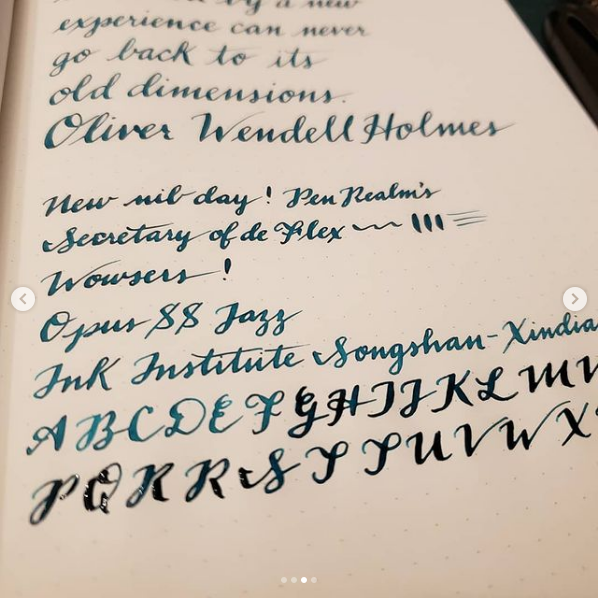 by a new
experience can never
go back to its
old dimensions.
Oliver Wendell Holmes
New nib day! Pen Realm's
Secretary of de Flex
Wowsers!
Opus 88 Jazz
Ink Institute Songshan-Xindia
ABCDEFGHIJKLM
PQRRSTTUVWX